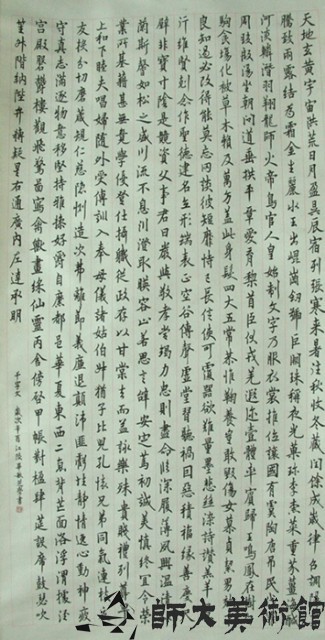 天地玄黃宇宙洪荒日月盈昃辰宿列張寒來暑往秋收冬藏閏餘成歲律呂調陽雲
騰致雨露結為霜金生麗水玉出崑崗劍號巨闕珠稱夜光果珍李柰菜重芥薑海鹹
河淡鱗潛羽翔龍師火帝鳥官人皇始制文字乃服衣裳推位讓國有虞陶唐弔民伐罪
周發殷湯坐朝問道垂拱平章愛育黎首臣伏戎羌遐邇壹體率賓歸王鳴鳳在樹白
駒食場化被草木賴及萬方蓋此身髮四大五常恭惟鞠養豈敢毀傷女慕貞絜男效才
良知過必改得能莫忘罔談彼短靡恃己長信使可覆器欲難量墨悲絲染詩讚羔羊景
行維賢剋念作聖德建名立形端表正空谷傳聲虛堂習聽禍因惡積福緣善慶尺
璧非寶寸陰是競資父事君曰嚴與敬孝當竭力忠則盡命臨深履薄夙興溫凊似
蘭斯馨如松之盛川流不息淵澄取映容止若思言辭安定篤初誠美慎終宜令榮
業所基藉甚無竟學優登仕攝職從政存以甘棠去而益詠樂殊貴賤禮別尊卑
上和下睦夫唱婦隨外受傅訓入奉母儀諸姑伯叔猶子比兒孔懷兄弟同氣連枝交
友投分切磨箴規仁慈隱惻造次弗離節義廉退顛沛匪虧性靜情逸心動神疲
守真志滿逐物意移堅持雅操好爵自縻都邑華夏東西二京背邙面洛浮渭據涇
宮殿盤鬱樓觀飛驚圖寫禽獸畫綵仙靈丙舍傍啟甲帳對楹肆筵設席鼓瑟吹
笙升階納陛弁轉疑星右通廣內左達承明
千字文 歲次辛酉
師大美術館